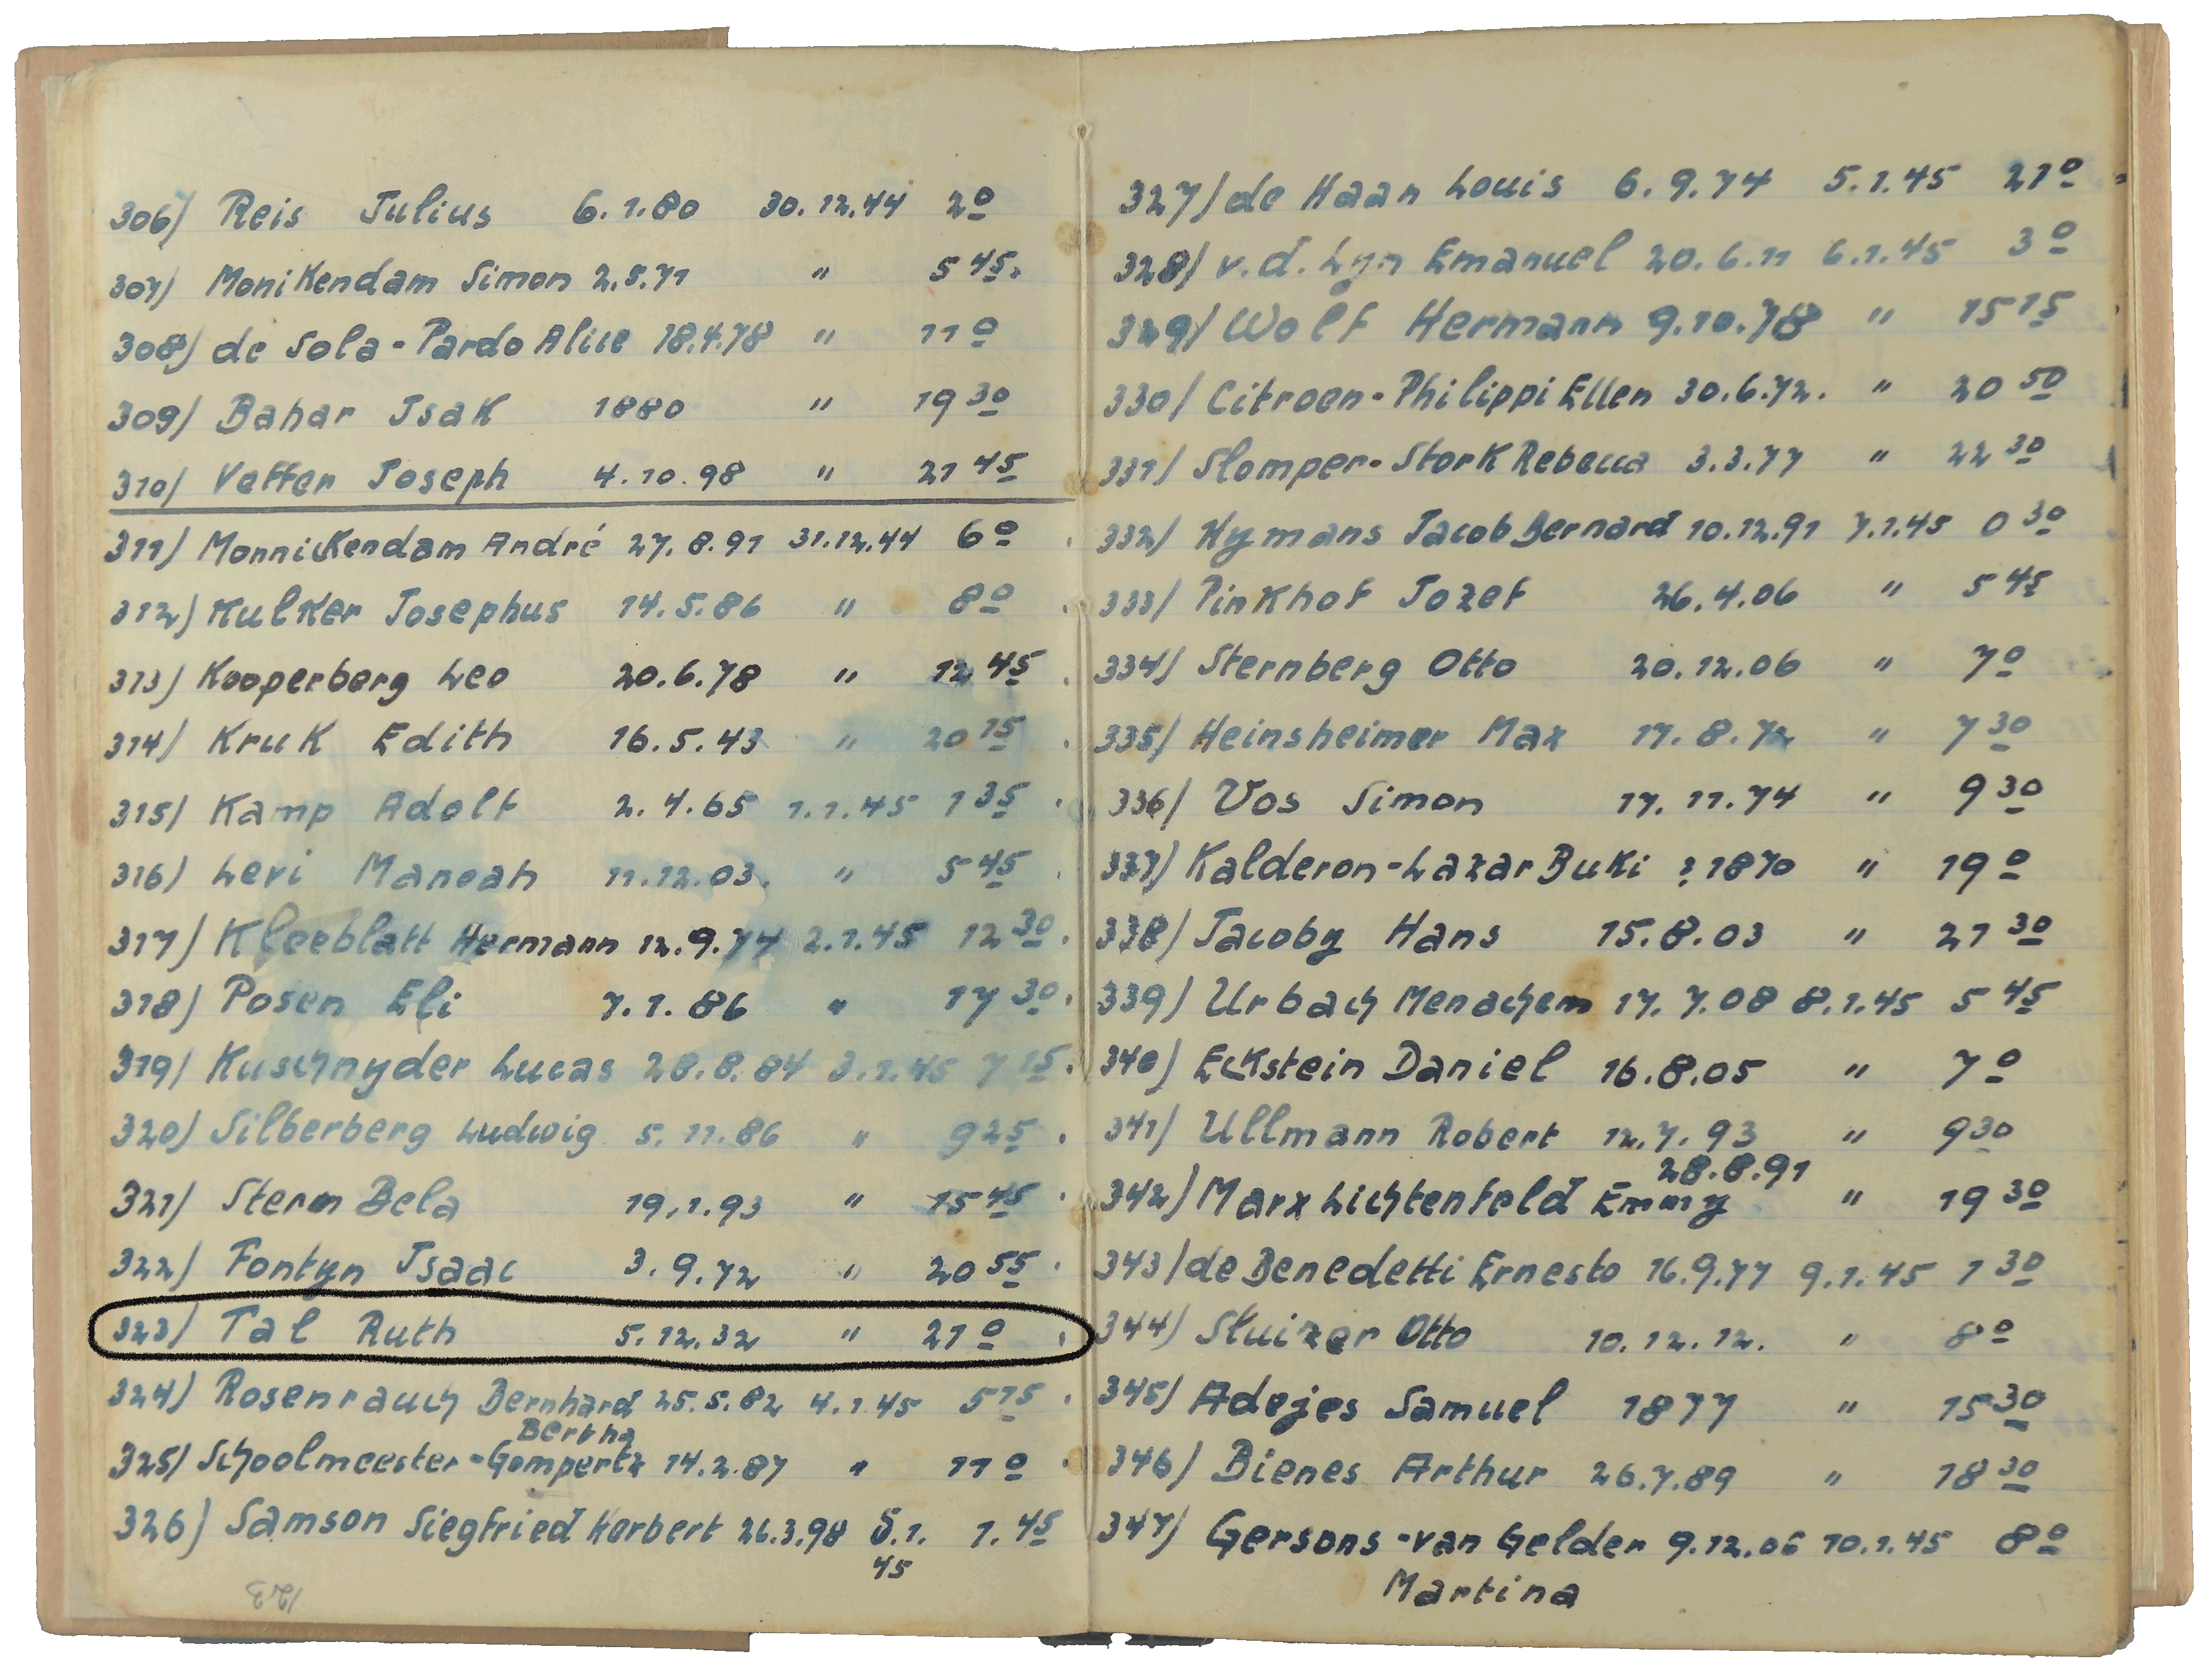 306) Reis Julius 6.1.80 30.12.44 2 0
307) Monikendam Simon 2.5.71 " 5 45.
308) de Sola-Pardo Alice 18.4.78 " 11 0
309) Bahar Isak 1880 " 19 30
310) Veffer Joseph 4.10.98 " 21 45
311) Monnickendam André 27.8.91 31.12.44 6 0
312) Kulker Josephus 14.5.86 " 8 0
313) Kooperberg Leo 20.6.78 " 12 45
314) Kruk Edith 16.5.43 " 20 15
315) Kamp Adolf 2.4.65 1.1.45 1 35
316) Levi Manoah 11.12.03. " 5 45
317) Kleeblatt Hermann 12.9.74 2.1.45 12 30.
318) Posen Eli 7.1.86 " 17 30.
319) Kuschnyder Lucas 28.8.84 3.1.45 7 15.
320) Silberberg Ludwig 5.11.86 " 9 25
321) Stern Bela 19.1.93 " 15 45
322) Fontyn Isaac 3.9.72 " 20 55
323) Tal Ruth 5.12.32 " 21 0
324) Rosenrauch Bernhard 25.5.82 4.1.45 5 15
Bertha
325) Schoolmeester-Gompertz 14.2.87 " 11 0
326) Samson Siegfried Herbert 26.3.98 5.1. 1.45
45
123
327) de Haan Louis 6.9.74 5.1.45 21 0
328) v.d. Lyn Emanuel 20.6.11 6.1.45 3 0
329) Wolf Hermann 9.10.78 " 15 15
330) Citroen-Philippi Ellen 30.6.72. " 20 50
331) Slomper-Stork Rebecca 3.3.77 " 22 30
332) Hymans Jacob Bernard 10.12.91 7.1.45 0 30
333) Pinkhof Jozef 26.4.06 " 5 45
334) Sternberg Otto 20.12.06 " 7 0
335) Heinsheimer Max 17.8.72 " 7 30
336) Vos Simon 17.11.74 " 9 30
337) Kalderon-Lazar Buki ? 1870 " 19 0
338) Jacoby Hans 15.8.03 " 21 30
339) Urbach Menachem 17.7.08 8.1.45 5 45
340) Eckstein Daniel 16.8.05 " 7 0
341) Ullmann Robert 12.7.93 " 9 30
28.8.91
342) Marx Lichtenfeld Emmy " 19 30
343) de Benedetti Ernesto 16.9.77 9.1.45 1 30
344) Sluizer Otto 10.12.12. " 8 0
345) Adejes Samuel 1877 " 15 30
346) Bienes Arthur 26.7.89 " 18 30
347) Gersons-van Gelder 9.12.06 10.1.45 8 0
Martina